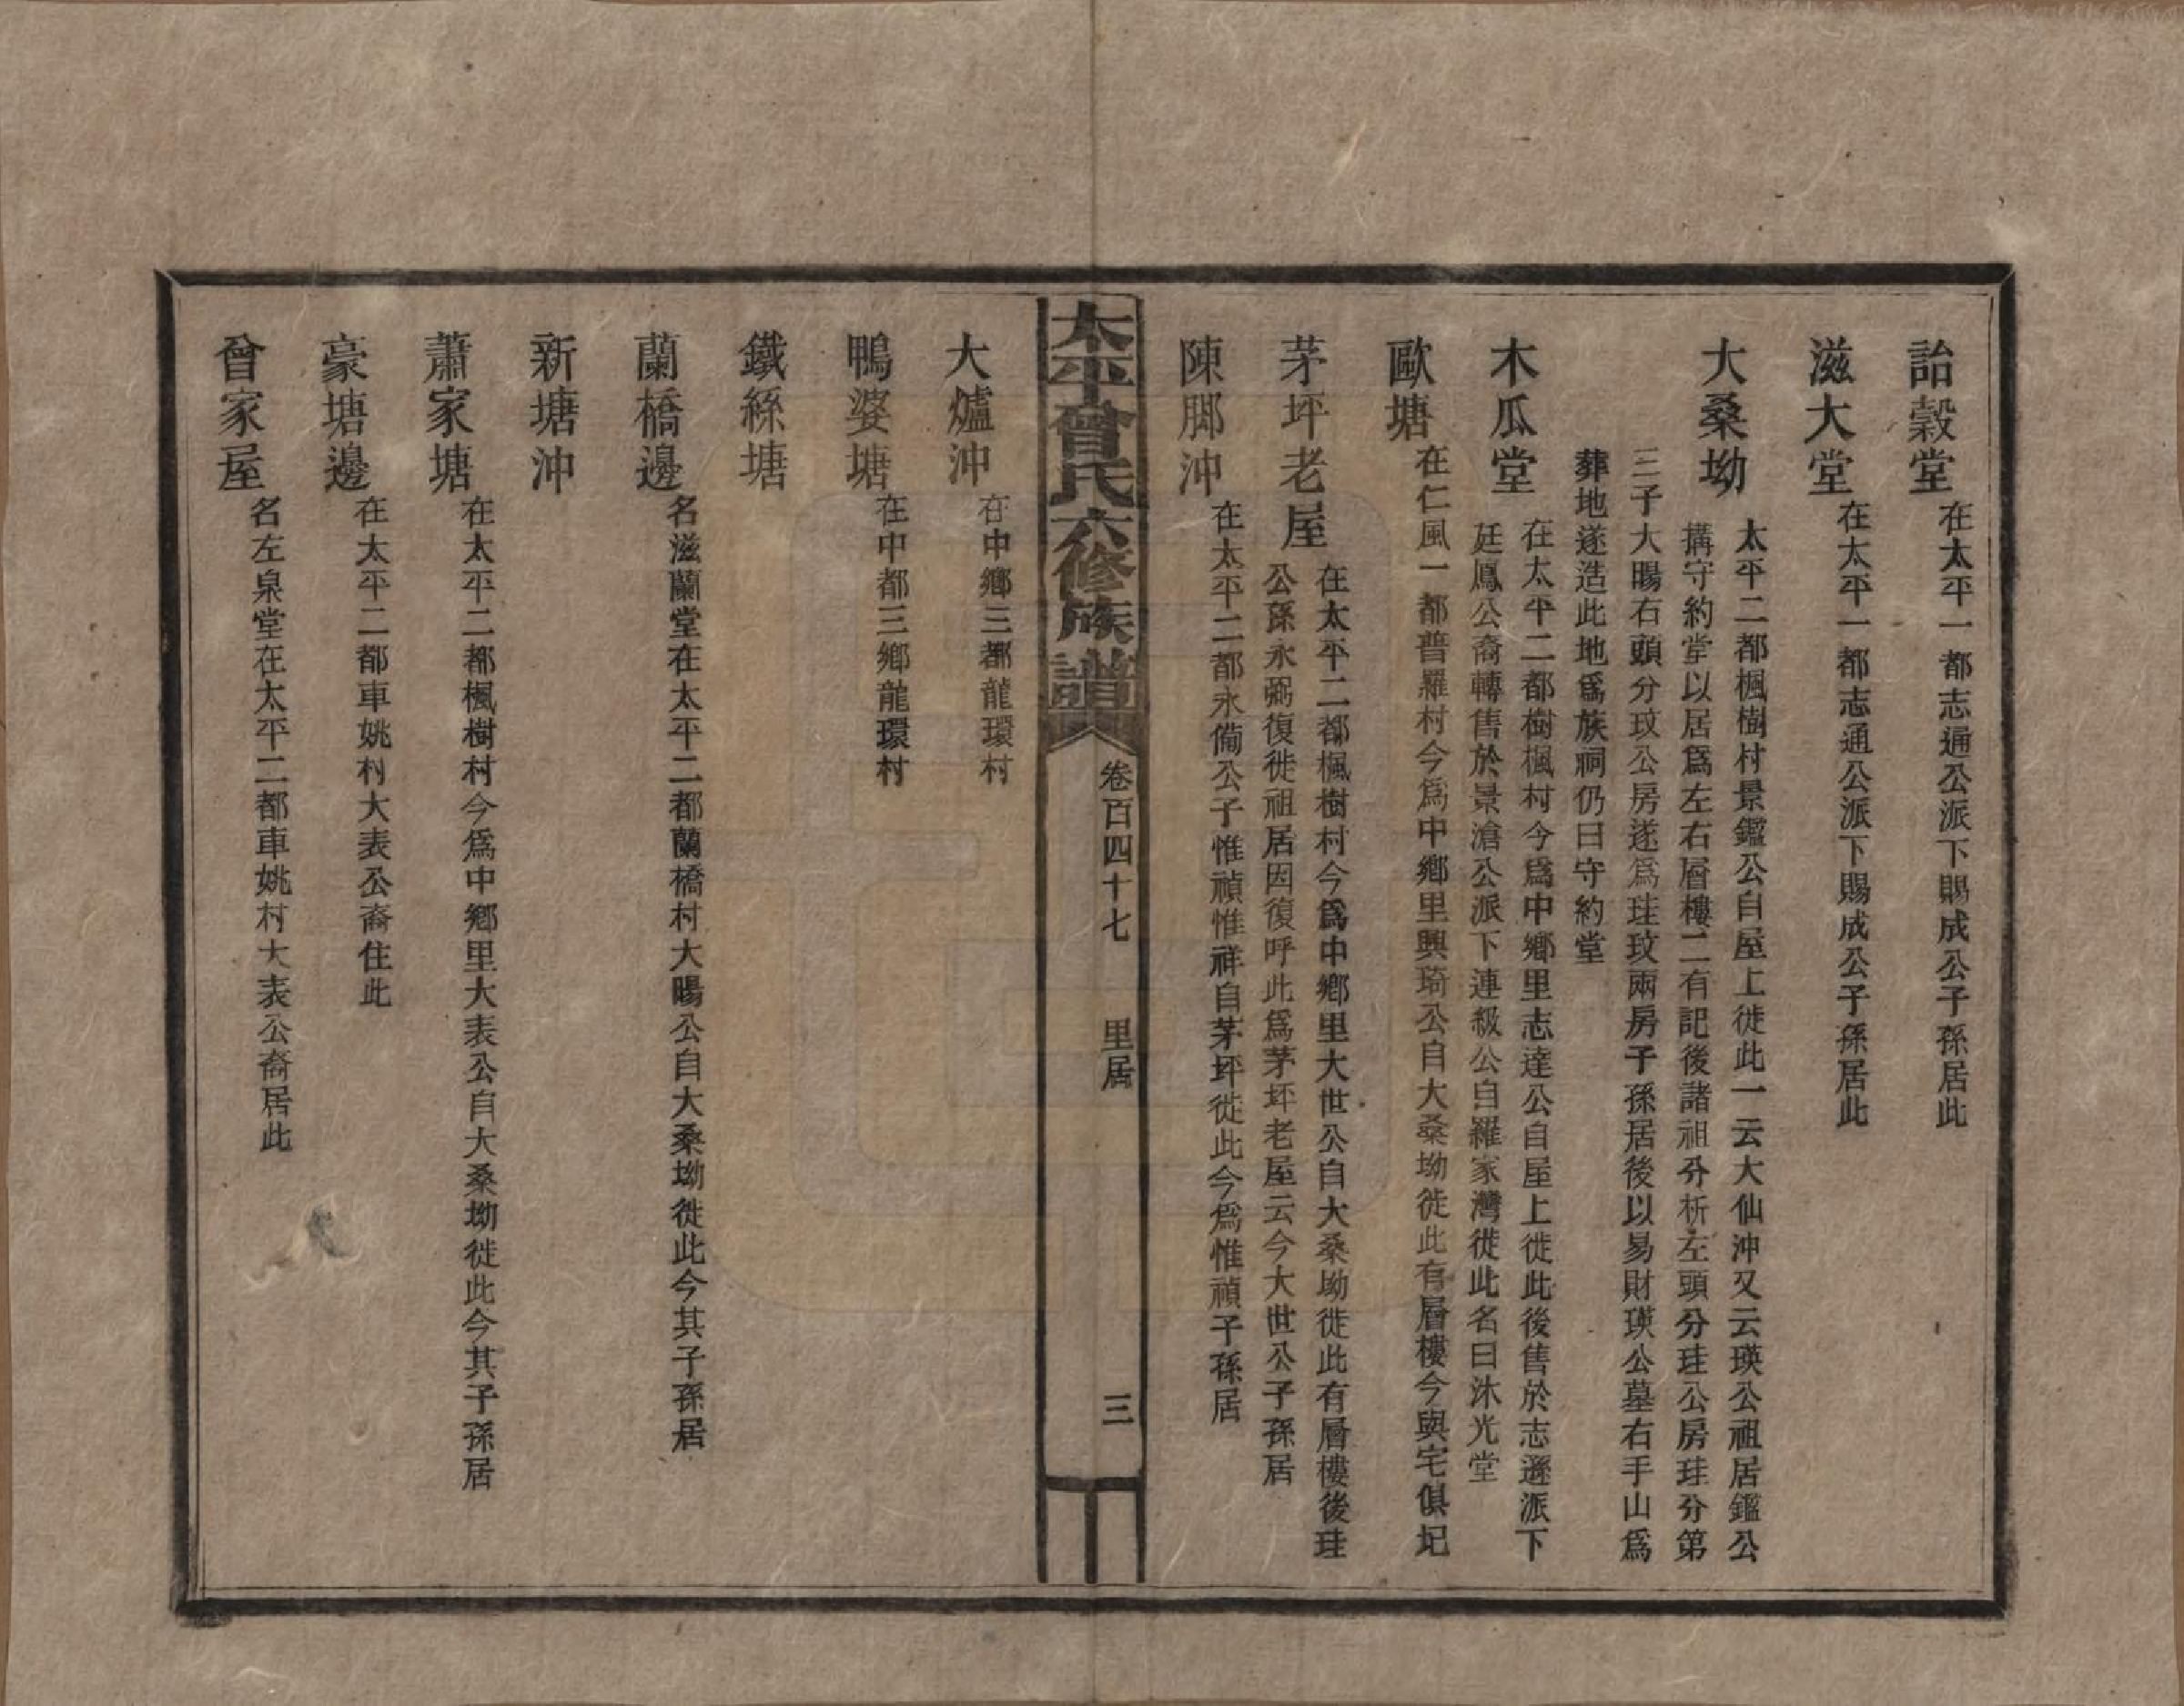 詒穀堂
在太平一都志通公派下賜成公子孫居此
滋大堂
在太平一都志通公派下賜成公子孫居此
大桑坳
太平二都楓樹村景鑑公自屋上徙此一云大仙沖又云瑛公祖居鑑公
搆守約堂以居爲左右層樓二有記後諸祖分析左頭分珪公房珪分第
三子大暘右頭分玟公房遂爲珪玟兩房子孫居後以易財瑛公墓右手山爲
葬地遂造此地爲族祠仍曰守約堂
木瓜堂
在太平二都樹楓村今爲中鄉里志達公自屋上徙此後售於志遜派下
廷鳳公裔轉售於景滄公派下連級公自羅家灣徙此名曰沐光堂
歐塘
在仁風一都普羅村今爲中鄉里興琦公自大桑坳徙此有層樓今與宅俱圮
茅坪老屋
在太平二都楓樹村今爲中鄉里大世公自大桑坳徙此有層樓後珪
公孫永弼復徙祖居因復呼此爲茅坪老屋云今大世公子孫居
陳脚沖
在太平二都永備公子惟禎惟祥自茅坪徙此今爲惟禎子孫居
太平曾氏六修族譜
卷百四十七
里居
三
大爐沖
在中鄉三都龍環村
鴨婆塘
在中都三鄉龍環村
鐵絲塘
蘭橋邊
名滋蘭堂在太平二都蘭橋村大暘公自大桑坳徙此今其子孫居
新塘沖
蕭家塘
在太平二都楓樹村今爲中鄉里大表公自大桑坳徙此今其子孫居
豪塘邊
在太平二都車姚村大表公裔住此
曾家屋
名左泉堂在太平二都車姚村大表公裔居此